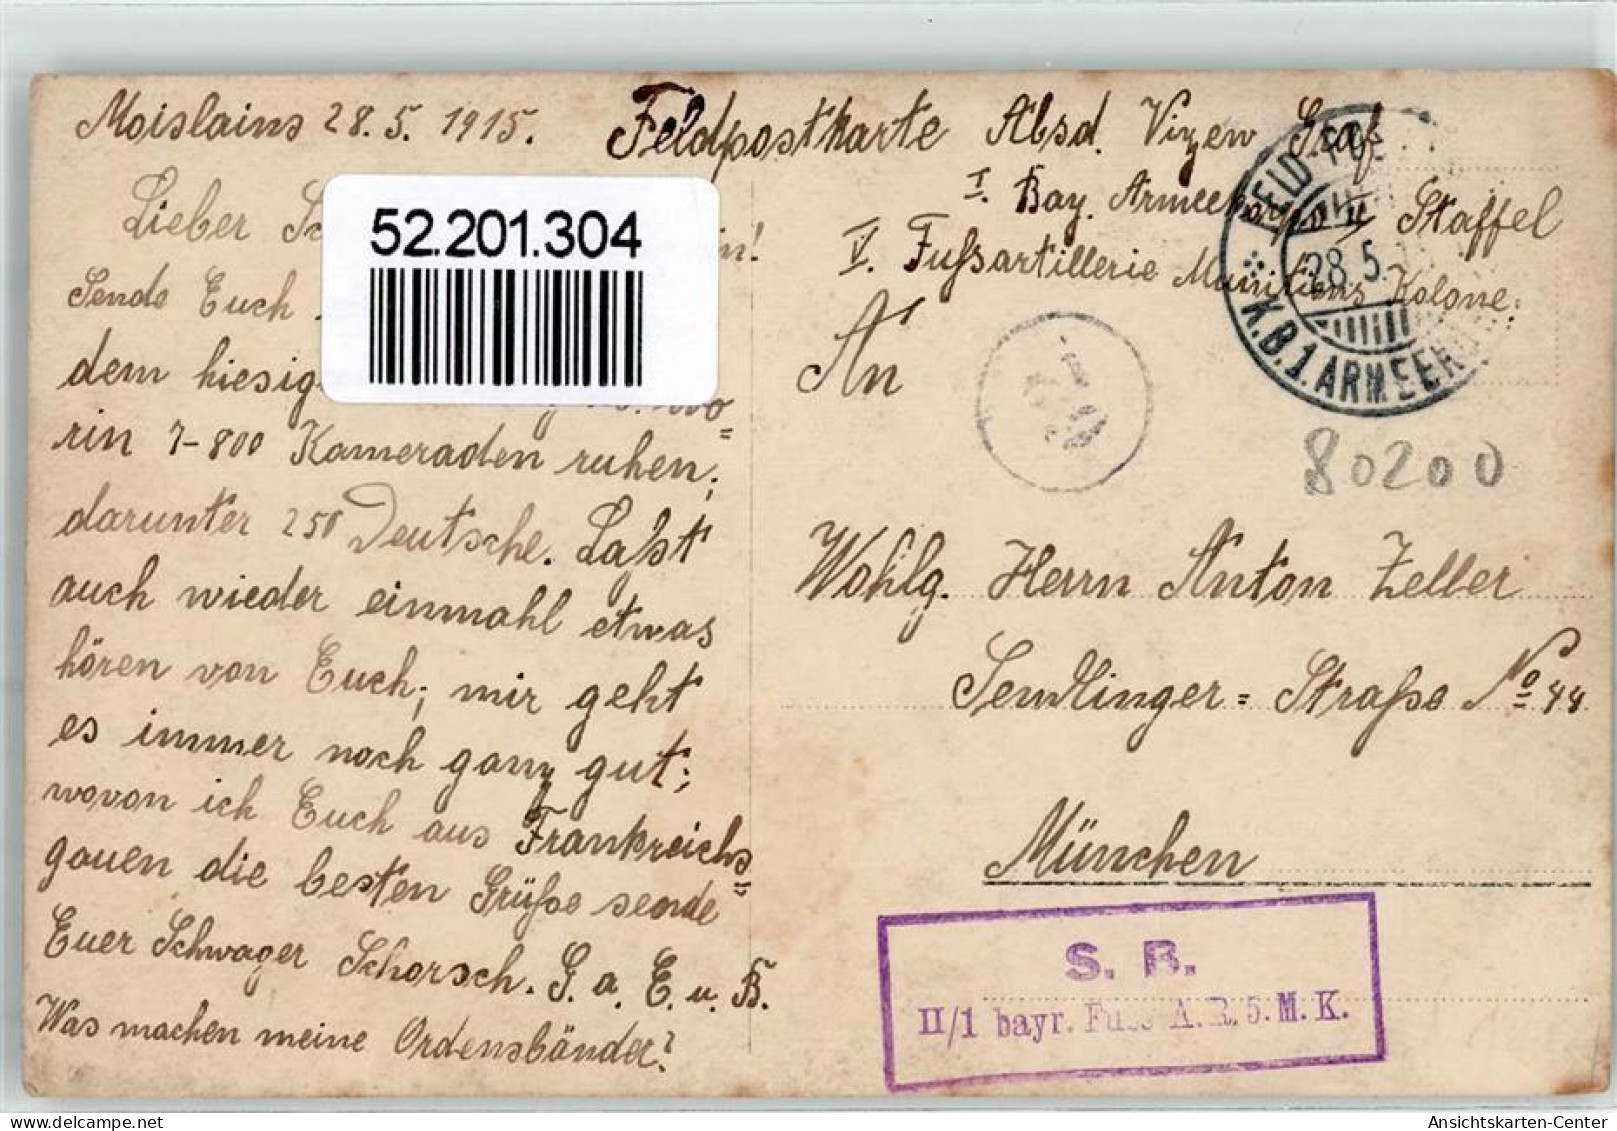 Moislains 28. 5. 1915.
Lieber
in!
Sende Euch
dem hiesig
wo=
rin 7-800 Kameraden ruhen;
darunter 250 Deutsche. Laßt
auch wieder einmahl etwas
hören von Euch; mir geht
es immer noch ganz gut;
wovon ich Euch aus Frankreichs=
gauen die besten Grüße sende
Euer Schwager Schorsch. G. a. E. u. B.
Was machen meine Ordensbänder?
52.201.304
Feldpostkarte Absd. Vizew Graf
I. Bay. Armeekorps II Staffel
V. Fußartillerie Munitions Kolone.
FELD-POS
28 5.
* K.B.1.ARMEEK
An
80200
Wohlg. Herrn Anton Zeller
Sendlinger= Straße No 44
München
S. B.
II/1 bayr. Fuss A.R. 5. M. K.
Ansichtskarten-Center